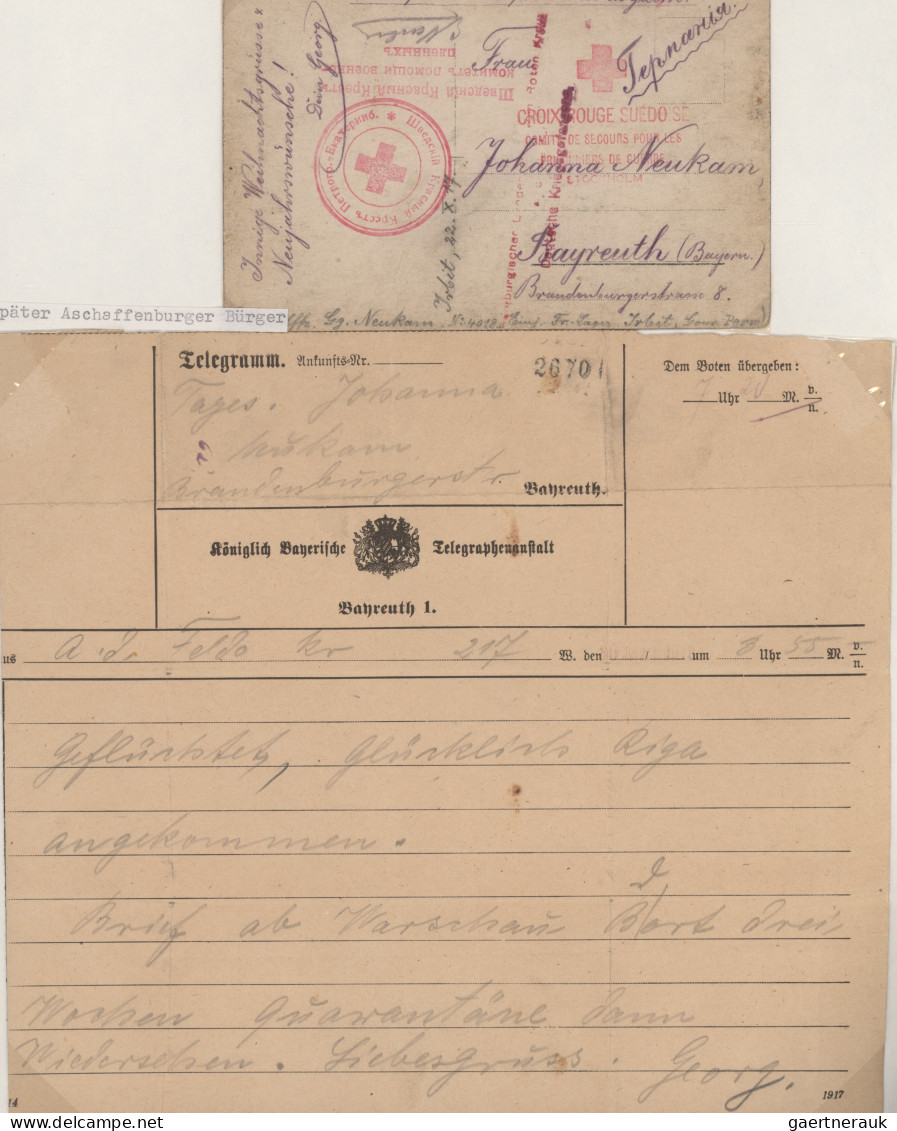 Innige Weihnachtsgrüsse &
Neujahrswünsche!
Dein Georg
Шведскій Красный Крестъ
комитетъ помощи военно
плѣнныхъ
Frau
Германія.
CROIX ROUGE SUÉDOISE
COMITÉ DE SECOURS POUR LES
PRISONNIERS DE GUERRE
STOCKHOLM
Johanna Neukam
Bayreuth (Bayern.)
Brandenburgerstrasse 8.
Шведскій Красный Крестъ Петрогр.-Екатеринб.
Irbit, 22.X.17.
Roten Kreuz
Deutsche Kriegsgefangene
Gg. Neukam, No 4018
Irbit, Gouv. Perm)
päter Aschaffenburger Bürger
Telegramm. Ankunfts-Nr.
2670
Dem Boten übergeben:
7 Uhr 20 M. v./n.
Tages. Johanna
Neukam
Brandenburgerstr.
Bayreuth.
Königlich Bayerische Telegraphenanstalt
Bayreuth 1.
us A. d. Felde Nr 217 W. den / um 8 Uhr 55 M. v./n.
Geflüchtet, Glücklich Riga
angekommen.
Brief ab Warschau Dort drei
Wochen Quarantäne dann
Wiedersehen. Liebesgruss. Georg.
14
1917
gaertnerauk